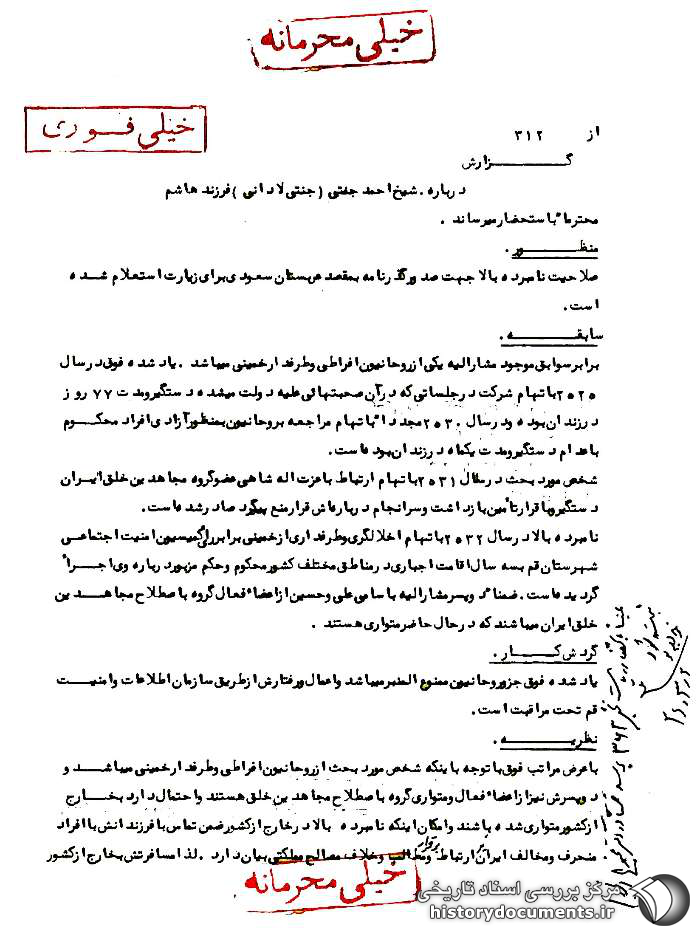 خیلی محرمانه
خیلی فوری
از ۳۱۲
گزارش
درباره . شیخ احمد جنتی (جنتی لادانی) فرزند هاشم
محترماً باستحضار میرساند .
منظور .
صلاحیت نامبرده بالا جهت صدور گذرنامه بمقصد عربستان سعودی برای زیارت استعلام شده
است .
سابقه .
برابر سوابق موجود مشارالیه یکی از روحانیون افراطی وطرفدار خمینی میباشد . یاد شده فوق در سال
۲۵۲۵ باتهام شرکت در جلساتی که در آن صحبتهائی علیه دولت میشده دستگیر ومدت ۷۷ روز
در زندان بوده ودر سال ۲۵۳۰ مجدداً باتهام مراجعه بروحانیون بمنظور آزادی افراد محکوم
باعدام دستگیر ومدت یکماه در زندان بوده است .
شخص مورد بحث در سال ۲۵۳۱ باتهام ارتباط با عزت اله شاهی عضو گروه مجاهدین خلق ایران
دستگیر وبا قرار تأمین بازداشت وسرانجام درباره اش قرار منع پیگرد صادر شده است .
نامبرده بالا در سال ۲۵۳۲ باتهام اخلالگری وطرفداری از خمینی برابر رأی کمیسیون امنیت اجتماعی
شهرستان قم به سه سال اقامت اجباری در مناطق مختلف کشور محکوم وحکم مزبور درباره وی اجرا
گردیده است . ضمناً دو پسر مشارالیه باسامی علی وحسین از اعضاء فعال گروه باصطلاح مجاهدین
خلق ایران میباشند که در حال حاضر متواری هستند .
گردش کار .
یاد شده فوق جزو روحانیون ممنوع المنبر میباشد واعمال ورفتارش از طریق سازمان اطلاعات وامنیت
قم تحت مراقبت است .
نظریه .
باعرض مراتب فوق با توجه باینکه شخص مورد بحث از روحانیون افراطی وطرفدار خمینی میباشد و
دو پسرش نیز از اعضاء فعال ومتواری گروه باصطلاح مجاهدین خلق هستند واحتمال دارد بخارج
از کشور متواری شده باشند وامکان اینکه نامبرده بالا در خارج از کشور ضمن تماس با فرزندانش با افراد
منحرف ومخالف ایران ارتباط برقرار ومطالب وخلاف مصالح مملکتی بیان دارد . لذا مسافرتش بخارج از کشور
خیلی محرمانه
مرکز بررسی اسناد تاریخی
historydocuments.ir